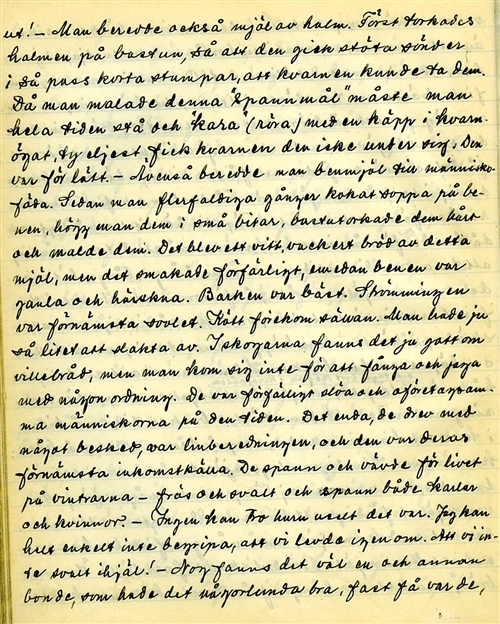 ut! – Man beredde också mjöl av halm. Först torkades
halmen på bastun, så att den gick stöta sönder
i så pass korta stumpar, att kvarnen kunde ta dem.
Då man malade denna "spannmål" måste man
hela tiden stå och "kara" (röra) med en käpp i kvarn-
ögat, ty eljest fick kvarnen den icke under sig. Den
var för lätt. – Ävenså beredde man benmjöl till människo-
föda. Sedan man flerfaldiga gånger kokat soppa på be-
nen, högg man dem i små bitar, bastutorkade dem hårt
och malde dem. Det blev ett vitt, vackert bröd av detta
mjöl, men det smakade förfärligt, emedan benen var
gamla och härskna. Barken var bäst. Strömmingen
var förnämsta sovlet. Kött förekom sällan. Man hade ju
så litet att slakta av. I skogarna fanns det ju gott om
villebråd, men man kom sig inte för att fånga och jaga
med någon ordning. De var förfärligt slöa och oföretagsam-
ma människorna på den tiden. Det enda, de drev med
något besked, var linberedningen, och den var deras
förnämsta inkomstkälla. De spann och vävde för livet
på vintrarna – frös och svalt och spann både karlar
och kvinnor. – Ingen kan tro huru uselt det var. Jag kan
helt enkelt inte begripa, att vi levde igenom. Att vi in-
te svalt ihjäl! – Nog fanns det väl en och annan
bonde, som hade det någorlunda bra, fast få var de,